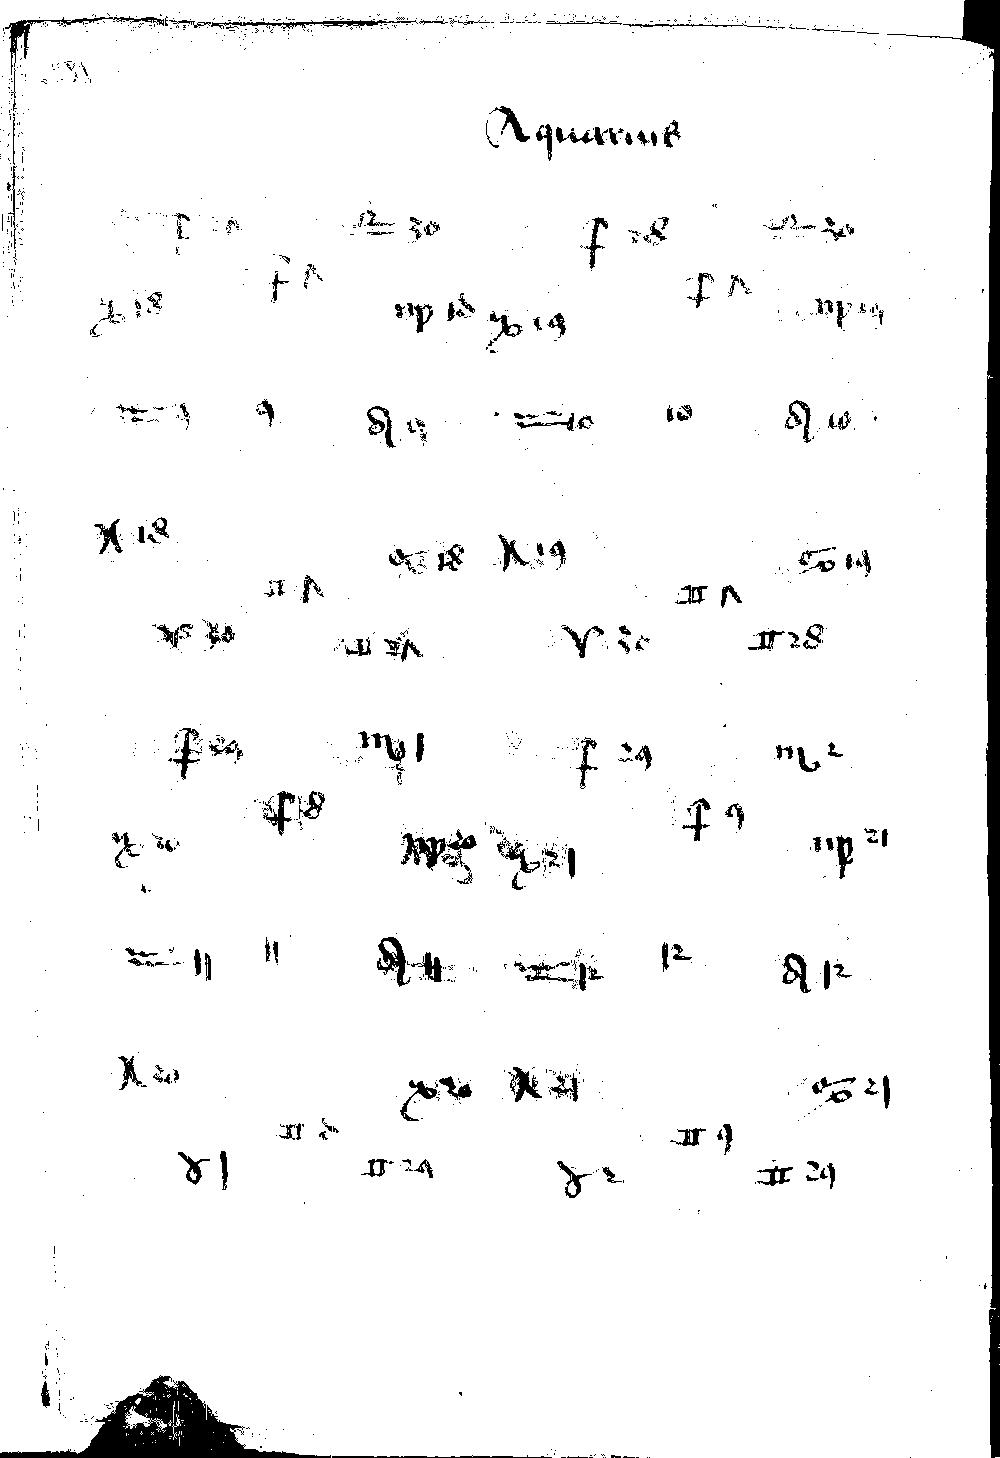 Aquarius
♎ 30 ♐ 28 ♎ 30
♐ Λ ♐ Λ
♑ 18 ♍ 18 ♑ 19 ♍ 19
♒ 9 9 ♌ 19 ♒ 10 10 ♌ 10
♓ 18 ♋ 18 ♓ 19 ♋ 19
♊ Λ ♊ Λ
30 ♊ 2Λ ♈ 30 ♊ 28
♐ 29 ♏ 1 ♐ 29 ♏ 2
♐ 8 ♐ 9
♑ 20 ♍ 20 ♑ 21 ♍ 21
♒ 11 11 ♌ 11 ♒ 12 12 ♌ 12
♓ 20 ♑ 20 ♓ 21 ♋ 21
♊ ♊ 9
♉ 1 ♊ 29 ♉ 2 ♊ 29